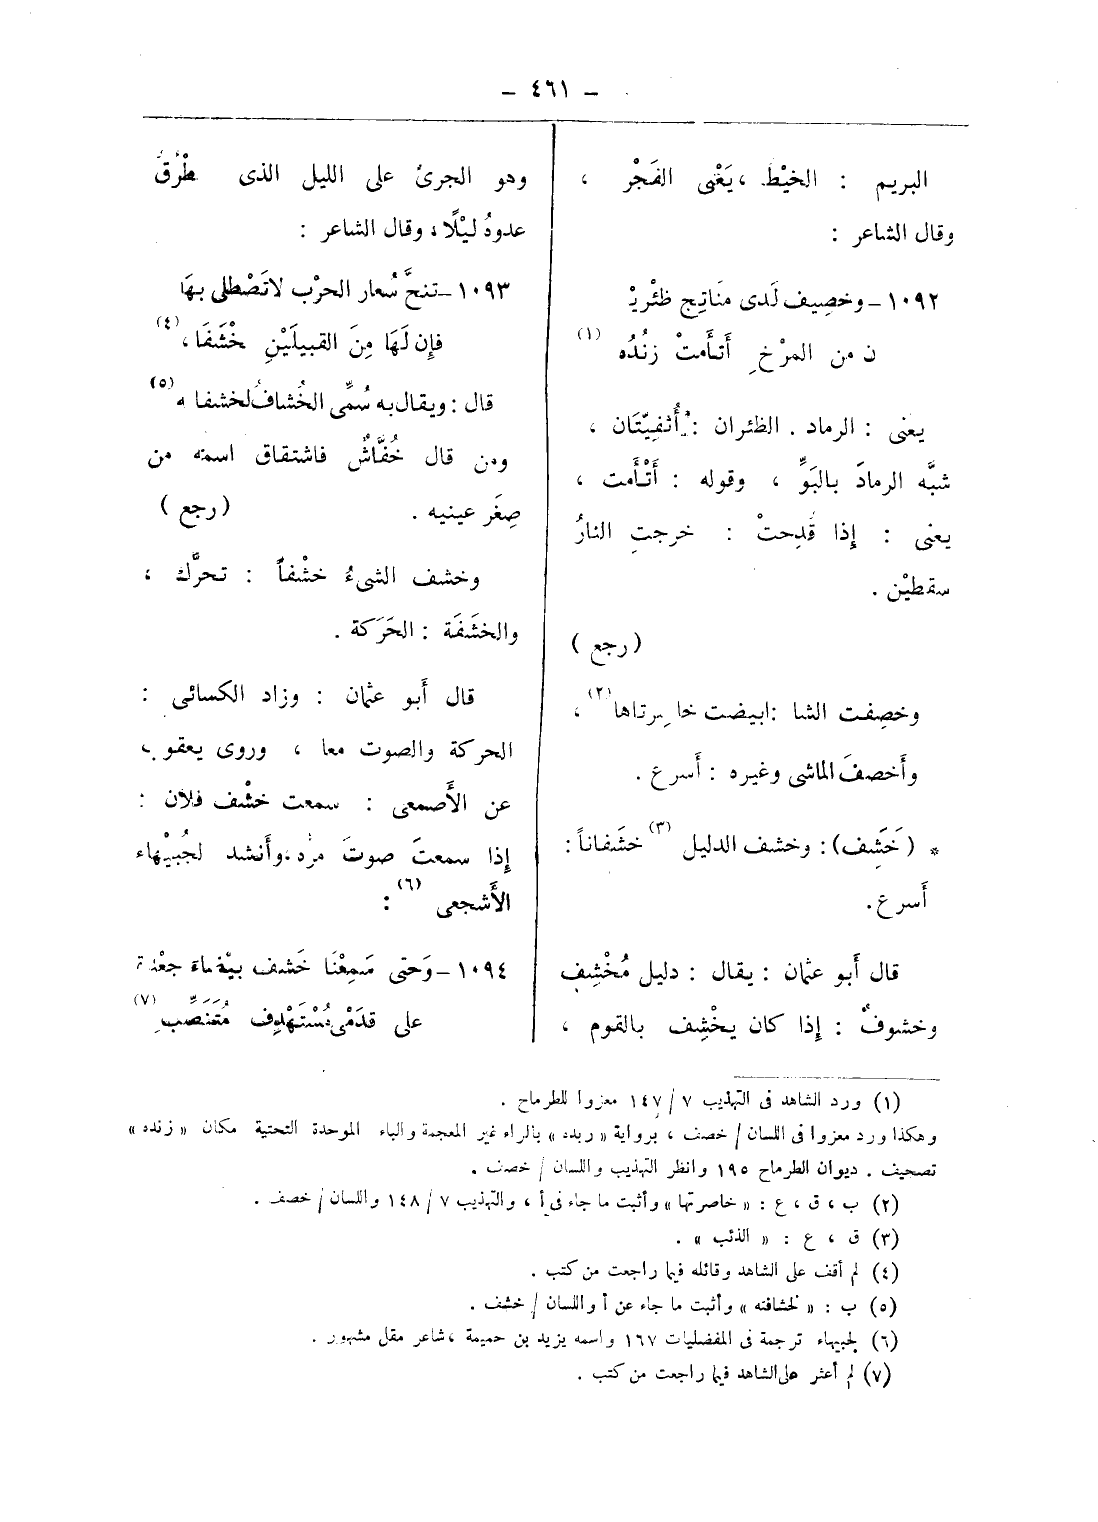 – ٤٦١ –
البريم : الخيْط ، يَعْنى الفَجْر ،
وقال الشاعر :
١٠٩٢ – وخصِيف لَدى مَناتِج ظئْريْـ
ن من المرْخِ أَتأَمتْ زنُدُه (١)
يعنى : الرماد . الظئران : أُثفِيّتَان ،
شبَّه الرمادَ بالبَوِّ ، وقوله : أَتْأَمت ،
يعنى : إِذا قُدِحتْ : خرجتِ النارُ
سقطيْن .
( رجع )
وخصِفت الشا : ابيضت خاصرتاها (٢) ،
وأَخصفَ الماشى وغيره : أَسرع .
* ( خَشَف ) : وخشف الدليل (٣) خشَفاناً :
أَسرع .
قال أَبو عثمان : يقال : دليل مُخْشِفِ
وخشوفٌ : إِذا كان يخْشِف بالقوم ،
وهو الجرئ على الليل الذى طْرُقُ
عدوهُ ليْلًا ، وقال الشاعر :
١٠٩٣ – تنحَّ سُعار الحرْب لاتَصْطلى بهَا
فإِن لَهَا مِنَ القبيلَيْنِ خْشَفَا ، (٤)
قال : ويقال به سُمِّى الخُشافُ لخشفا ه (٥)
ومن قال خُفَّاشٌ فاشتقاق اسمه من
صِغَر عينيه . ( رجع )
وخشف الشىءُ خشْفاً : تحرَّك ،
والخشَفَة : الحَرَكة .
قال أَبو عثمان : وزاد الكسائى :
الحركة والصوت معا ، وروى يعقوب
عن الأَصمعى : سمعت خشْف فلان :
إِذا سمعتَ صوتَ مره ، وأَنشد لجُبيْهاء
الأَشجعى (٦) :
١٠٩٤ – وَحَتى سَمِعْنَا خَشف بيْضاء جعْدة
على قدَمْى مُسْتَهْدِف مُتَقَصِّب (٧)
(١) ورد الشاهد فى التهذيب ٧ / ١٤٧ معزوا للطرماح .
وهكذا ورد معزوا فى اللسان / خصف ، برواية « ربده » بالراء غير المعجمة والباء الموحدة التحتية مكان « زنده »
تصحيف . ديوان الطرماح ١٩٥ وانظر التهذيب واللسان / خصف .
(٢) ب ، ق ، ع : « خاصرتها » وأثبت ما جاء فى أ ، والتهذيب ٧ / ١٤٨ واللسان / خصف .
(٣) ق ، ع : « الذئب » .
(٤) لم أقف على الشاهد وقائله فيما راجعت من كتب .
(٥) ب : « لخشافته » وأثبت ما جاء عن أ واللسان / خشف .
(٦) لجبيهاء ترجمة فى المفضليات ١٦٧ واسمه يزيد بن حميمة ، شاعر مقل مشهور .
(٧) لم أعثر على الشاهد فيما راجعت من كتب .